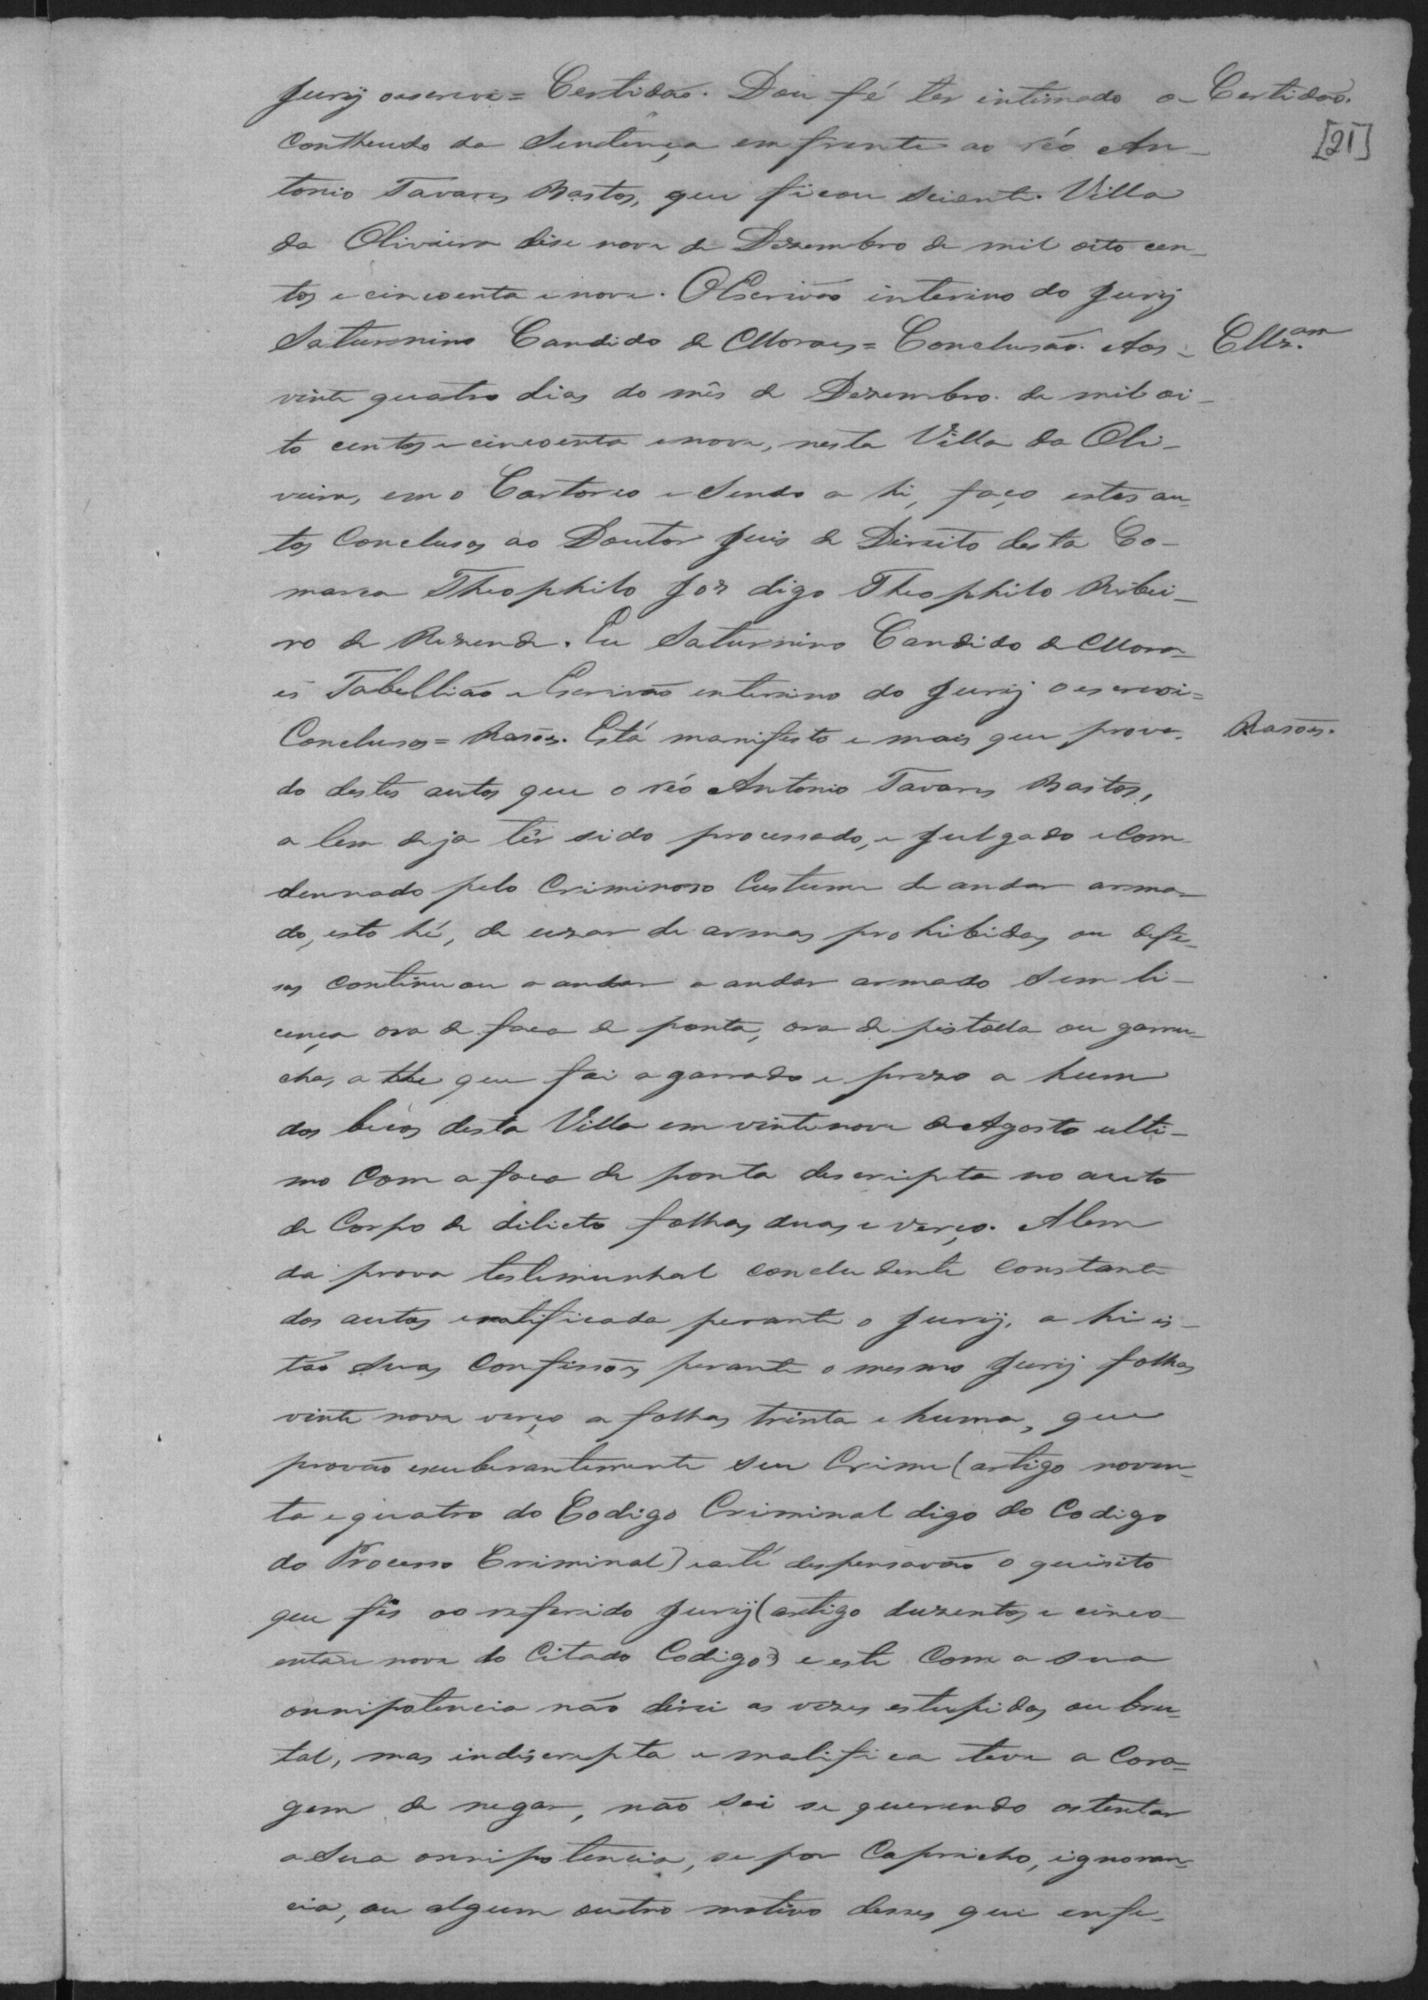 Jury oescrevi = Certidão. Dou fé ter intimado o Certidão.
[21]
contheudo da Sentença em frente ao réo An-
tonio Tavares Bastos, que ficou sciente. Villa
da Oliveira dise nove de Dezembro de mil oito cen-
tos e cincoenta e nove. OEscrivão interino do Jury
Saturnino Candido de Moraes = Conclusão. Aos Cllz.am
vinte quatro dias do mês de Dezembro de mil oi-
to centos e cincoenta e nove, nesta Villa da Oli-
veira, em o Cartorio e Sendo a hi, faço estes au-
tos Conclusos ao Doutor Juis de Direito desta Co-
marca Theophilo Joz digo Theophilo Ribei-
ro de Rezende. Eu Saturnino Candido de Mora-
es Tabellião e Escrivão enterino do Jury oescrevi =
Conclusos = Rasões. Está manifesto e mais que prova- Rasões.
do destes autos que o réo Antonio Tavares Bastos,
a lem deja têr sido processado, e julgado e com-
demnado pelo Criminoso Custume de andar arma-
do, esto hé, de uzar de armas prohibidas ou defe-
sas continuou a andar a andar armado Sem li-
cença ora de faca de ponta, ora de pistolla ou garru-
cha, a the que foi agarrado e prezo a hum
dos becos desta Villa em vintenove de Agosto ulti-
mo Com a faca de ponta descripta no auto
de Corpo de dilicto folhas duas e verço. Alem
da prova testimunhal concludente Constante
dos autos eratificada perante o Jury, a hi es-
tão Suas Confissões perante o mesmo Jury folhas
vinte nove verço a folhas trinta e huma, que
provão exuberantemente seu Crime (artigo noven-
ta e quatro do Codigo Criminal digo do Codigo
do Processo Criminal) e até despensavão o quisito
que fis ao referido Jury (artigo duzentos e cinco-
enta e nove do Citado Codigo) e este Com a sua
omnipotencia não direi as vezes estupidas ou bru-
tal, mas indiscripta e malifica teve a Cora-
gem de negar, não sei se querendo ostentar
a Sua omnipotencia, se por Capricho, ignoran-
cia, ou algum outro motivo desses que enfe-